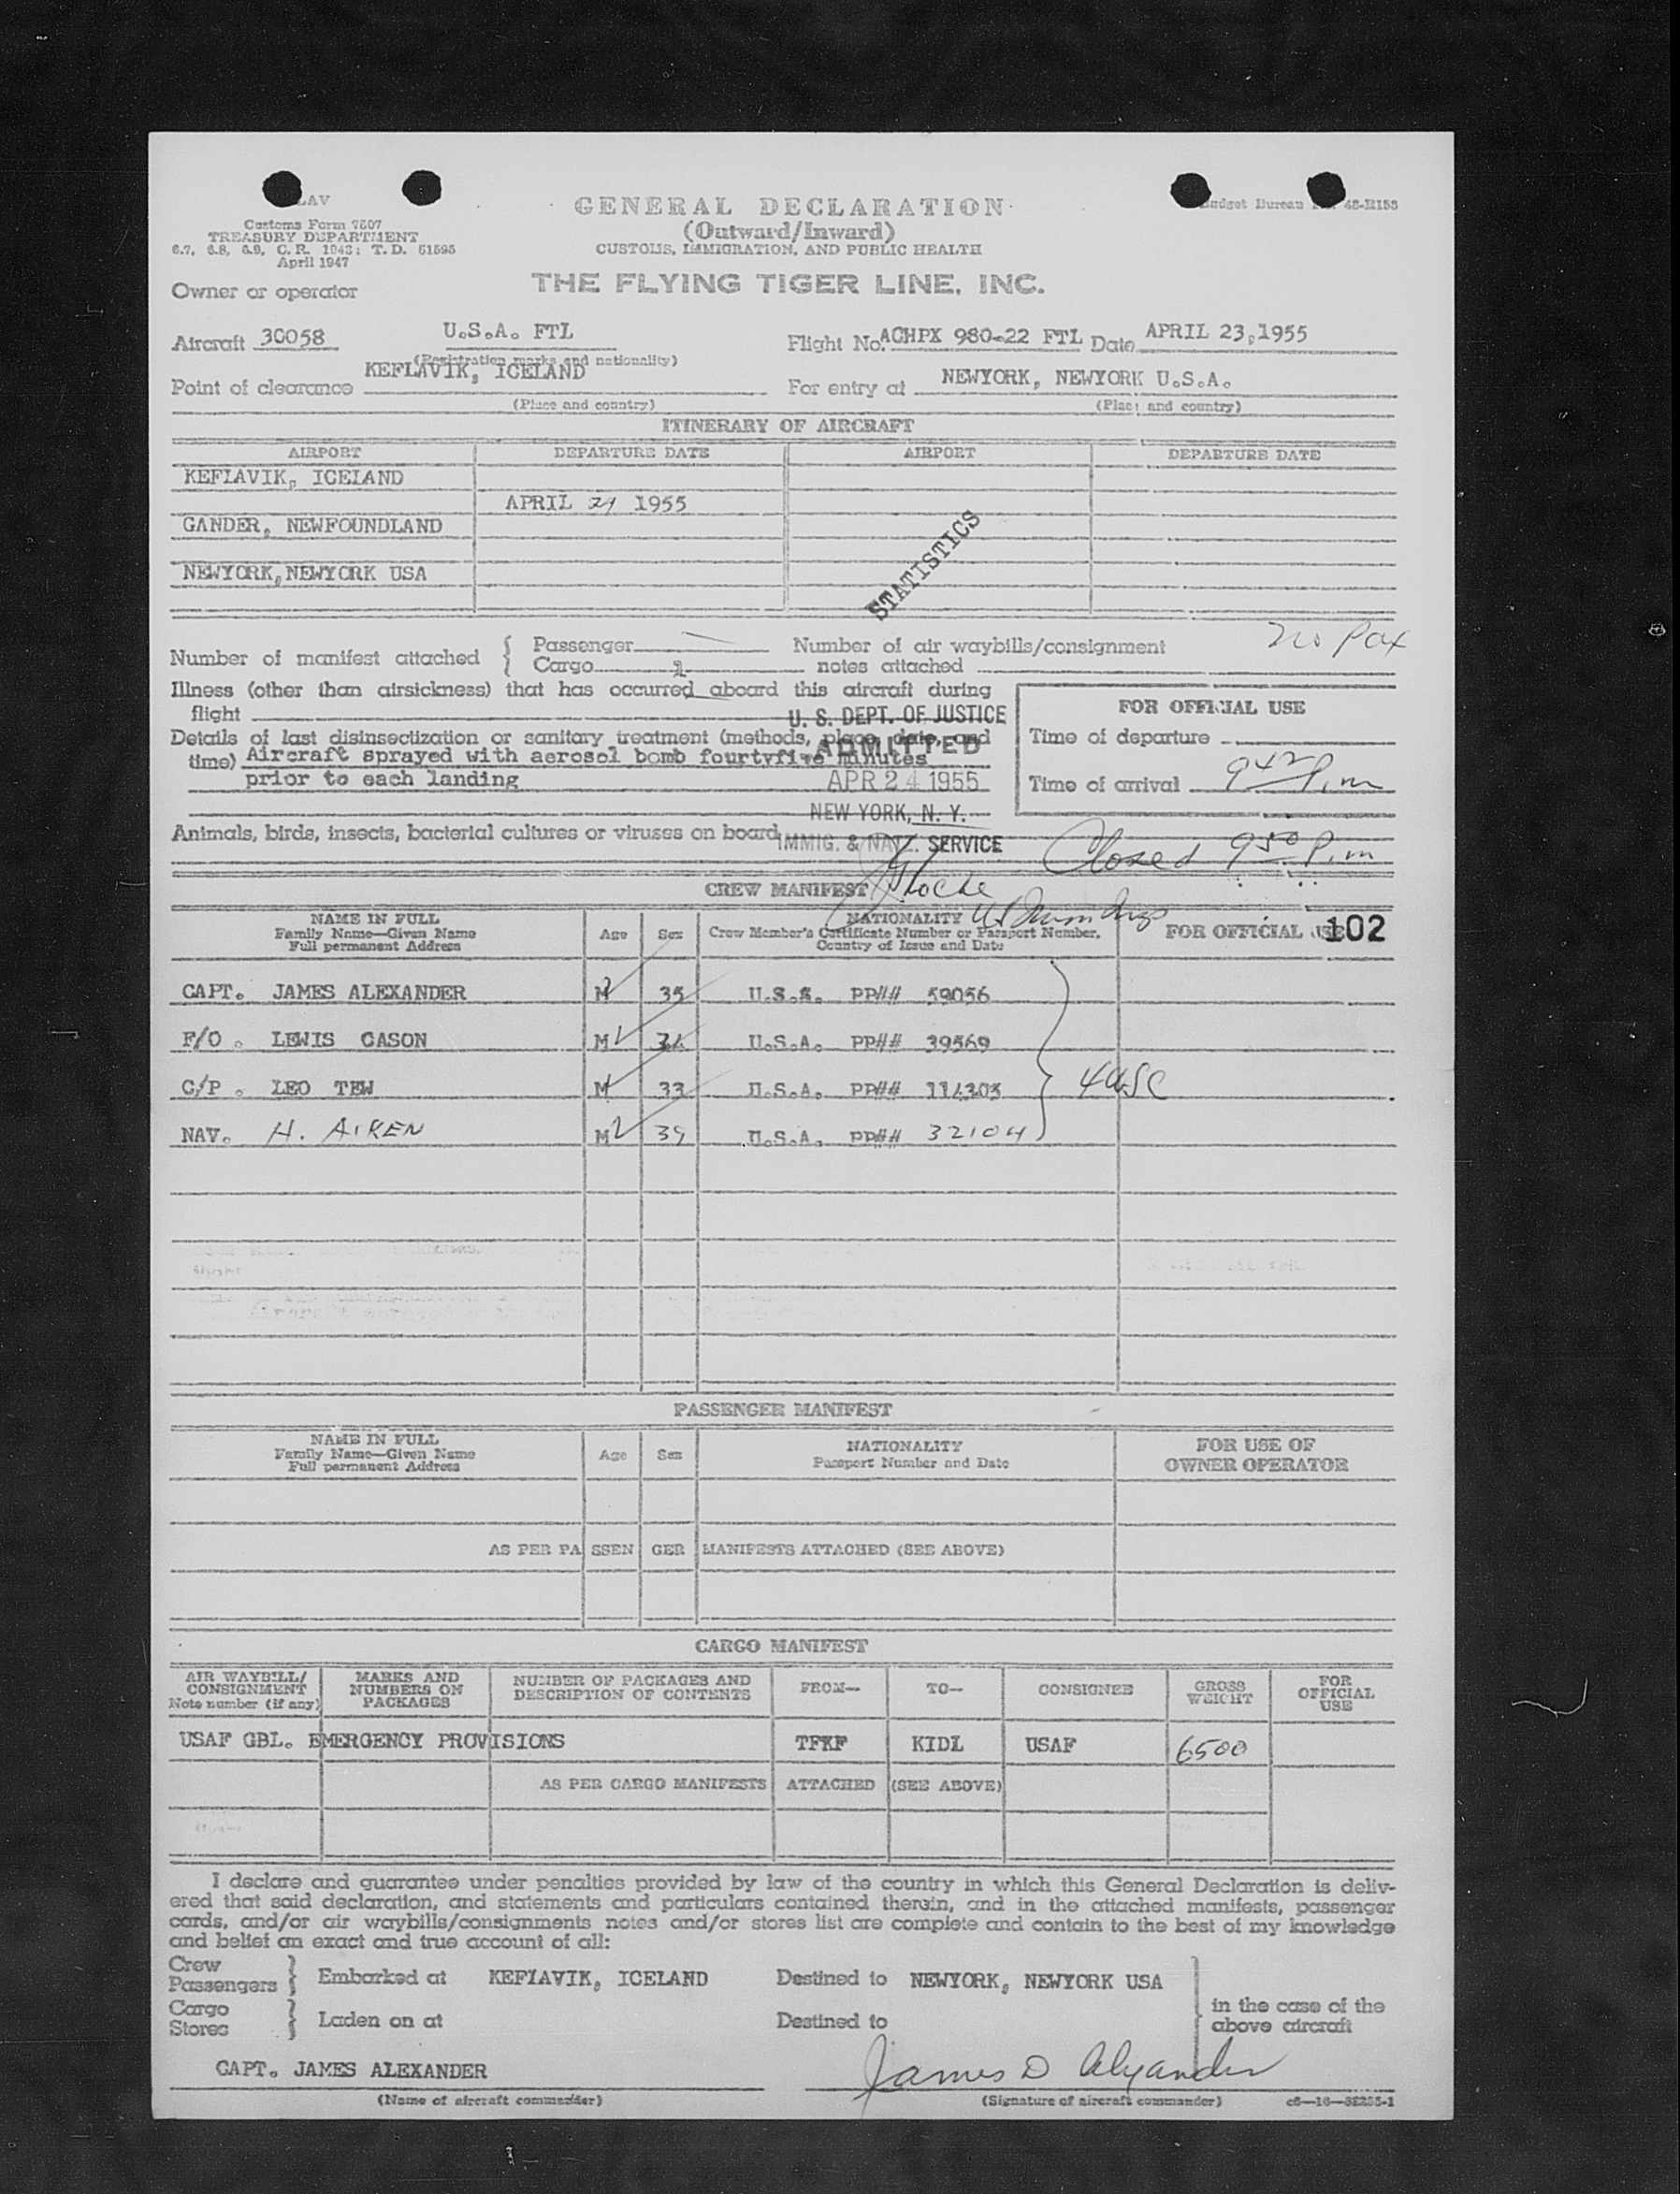 LAV
Customs Form 7507
TREASURY DEPARTMENT
6.7, 6.8, 6.9, C.R. 1943; T.D. 51595
April 1947
GENERAL DECLARATION
(Outward/Inward)
CUSTOMS, IMMIGRATION, AND PUBLIC HEALTH
Budget Bureau 48-R153
Owner or operator
THE FLYING TIGER LINE, INC.
Aircraft 30058 U.S.A. FTL Flight No. ACHPX 980-22 FTL Date APRIL 23,1955
(Registration marks and nationality)
Point of clearance KEFLAVIK, ICELAND For entry at NEWYORK, NEWYORK U.S.A.
(Place and country) (Place and country)
ITINERARY OF AIRCRAFT
AIRPORT DEPARTURE DATE AIRPORT DEPARTURE DATE
KEFLAVIK, ICELAND
APRIL 24 1955
GANDER, NEWFOUNDLAND
NEWYORK,NEWYORK USA
STATISTICS
Number of manifest attached { Passenger Number of air waybills/consignment no Pax
Cargo 1 notes attached
Illness (other than airsickness) that has occurred aboard this aircraft during
flight
U. S. DEPT. OF JUSTICE
FOR OFFICIAL USE
Details of last disinsectization or sanitary treatment (methods, place, date, and
time) Aircraft sprayed with aerosol bomb fourtyfive minutes
prior to each landing
ADMITTED
APR 24 1955
NEW YORK, N. Y.
IMMIG. & NATZ. SERVICE
Time of departure
Time of arrival 9 42 P.m
Animals, birds, insects, bacterial cultures or viruses on board
Closed 9 50 P.m
CREW MANIFEST
NAME IN FULL
Family Name—Given Name
Full permanent Address
Age Sex
NATIONALITY
Crew Member's Certificate Number or Passport Number,
Country of Issue and Date
FOR OFFICIAL USE 102
CAPT. JAMES ALEXANDER M 35 U.S.A. PP## 59056
F/O . LEWIS CASON M U.S.A. PP## 39569
C/P . LEO TEW M 33 U.S.A. PP## 114303 4 USC
NAV. H. AIKEN M 39 U.S.A. PP## 32104
PASSENGER MANIFEST
NAME IN FULL
Family Name—Given Name
Full permanent Address
Age Sex
NATIONALITY
Passport Number and Date
FOR USE OF
OWNER OPERATOR
AS PER PASSENGER MANIFESTS ATTACHED (SEE ABOVE)
CARGO MANIFEST
AIR WAYBILL/
CONSIGNMENT
Note number (if any)
MARKS AND
NUMBERS ON
PACKAGES
NUMBER OF PACKAGES AND
DESCRIPTION OF CONTENTS
FROM— TO— CONSIGNEE
GROSS
WEIGHT
FOR
OFFICIAL
USE
USAF GBL. EMERGENCY PROVISIONS TFKF KIDL USAF 6500
AS PER CARGO MANIFESTS ATTACHED (SEE ABOVE)
I declare and guarantee under penalties provided by law of the country in which this General Declaration is deliv-
ered that said declaration, and statements and particulars contained therein, and in the attached manifests, passenger
cards, and/or air waybills/consignments notes and/or stores list are complete and contain to the best of my knowledge
and belief an exact and true account of all:
Crew
Passengers } Embarked at KEFLAVIK, ICELAND Destined to NEWYORK, NEWYORK USA
Cargo
Stores } Laden on at Destined to
in the case of the
above aircraft
CAPT. JAMES ALEXANDER James D Alexander
(Name of aircraft commander) (Signature of aircraft commander)